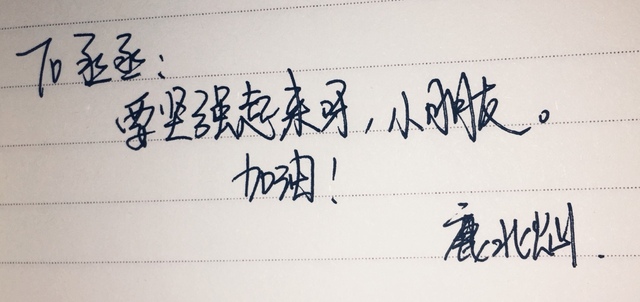 To 丞丞：
要坚强起来呀，小朋友。
加油！